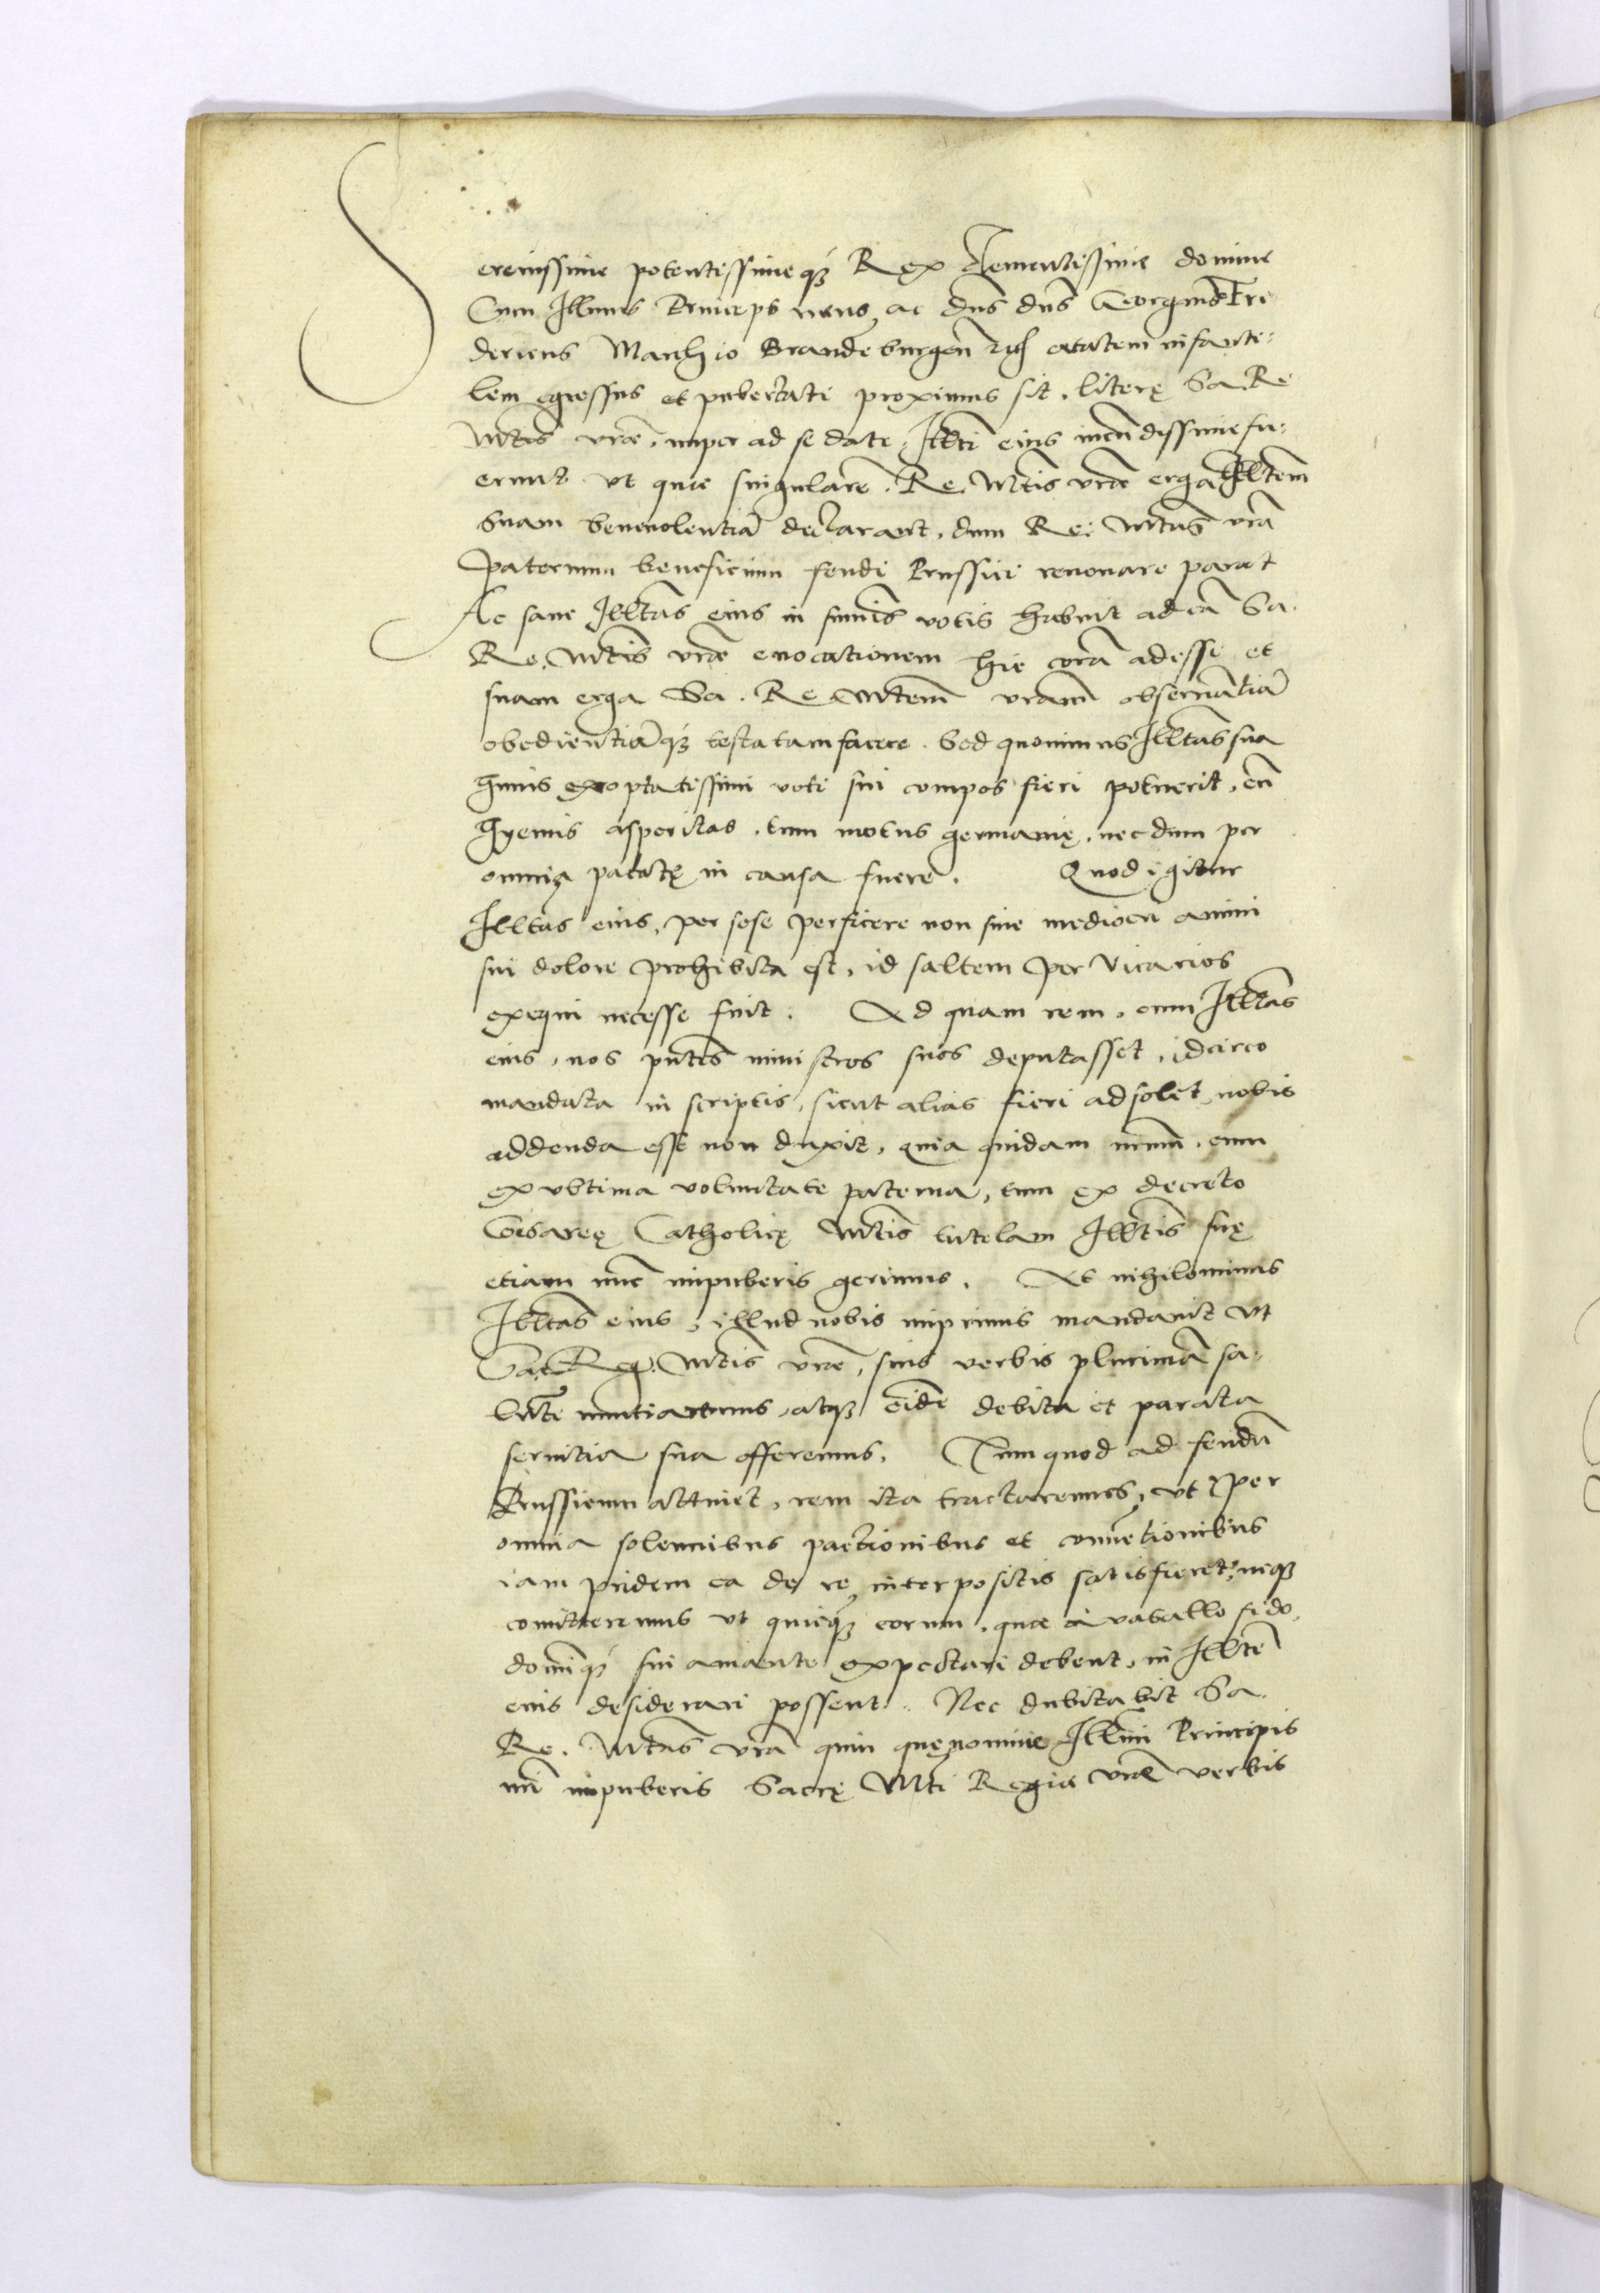 Serenissime potentissimeq3 Rex clementissime domine
Cum Illmus Princeps meus, ac dns dns Georgius Fri
dericus Marchio Brandeburgen etc etatem infanti:
lem egressus et pubertati proximus sit, literę Sa. Re
Mtis vrae, nuper ad se datę, Illti eius iucundissime fu:
erunt vt quae singularē. Re. Mtis vrae erga Illtem
Suam beneuolentiā declarant, dum Re: Mtas vrā
paternum beneficium feudi Prussiae renouare parat
Ac sane Illtas eius in sumis votis habuit ad eā Sa.
Re. Mtis vrae euocationem hic corā adesse et
suam erga Sa. Re Mtem vram obseruātiā
obedientiāq3 testatam facere. Sed quominus Illtas sua
huius exoptatissimi voti sui compos fieri potuerit, cū
hyemis asperitas, tum motus germanię, necdum per
omnia pacatę in causa fuere. Quod igitur
Illtas eius, per sese perficere non sine mediocri animi
sui dolore prohibita est, id saltem per vicarios
exequi necesse fuit. Ad quam rem, cum Illtas
eius, nos pntes ministros suos deputasset, idcirco
mandata in scriptis, sicut alias fieri adsolet, nobis
addenda esse non duxit, quia quidam nrum, cum
ex vltima voluntate paterna, tum ex decreto
Cesareę Catholicę Mtis tutelam Illtis suę
etiam nūc impuberis gerimus. At nihilominus
Illtas eius, illud nobis inprimis mandauit vt
Sac. Reg. Mtis vrae, suis verbis plurimā sa:
lutē nuntiaremus, atq3 eidē debita et parata
seruitia sua offeremus. Tum quod ad feudū
Prussicum attinet, rem ita tractaremus, vt per
omnia solennibus pactionibus et conuētionibus
iam pridem ea de re interpositis satisfieret, neq3
comitteremus vt quicq3 eorum, quae a vasallo fido,
dominiq3 sui amante expectari debent, in Illtē
eius desiderari possent. Nec dubitabit Sa.
Re. Mtas vrā quin quę nomine Illmi Principis
nri impuberis Sacrę Mti Regiae vrae verbis